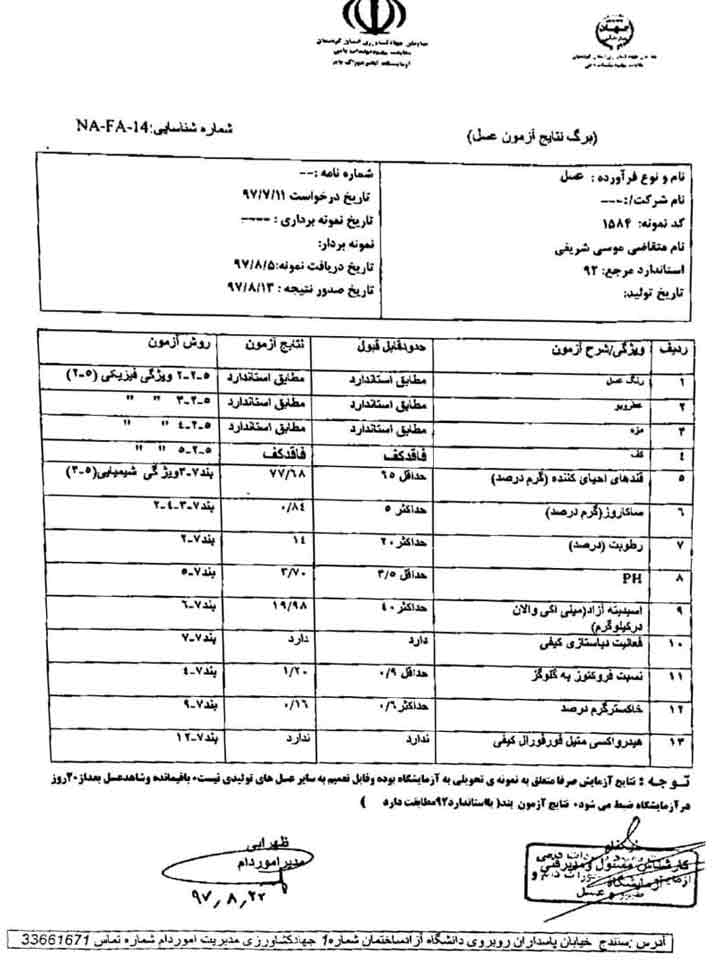 (برگ نتایج آزمون عسل)
شماره شناسایی:NA-FA-14
نام و نوع فرآورده : عسل
نام شرکت/:---
کد نمونه: ۱۵۸۴
نام متقاضی موسی شریفی
استاندارد مرجع: ۹۲
تاریخ تولید:
شماره نامه :--
تاریخ درخواست ۹۷/۷/۱۱
تاریخ نمونه برداری : ----
نمونه بردار:
تاریخ دریافت نمونه:۹۷/۸/۵
تاریخ صدور نتیجه : ۹۷/۸/۱۳
ردیف ویژگی/شرح آزمون حدودقابل قبول نتایج آزمون روش آزمون
۱ رنگ عسل مطابق استاندارد مطابق استاندارد ۵-۲-۲ ویژگی فیزیکی (۵-۲)
۲ عطروبو مطابق استاندارد مطابق استاندارد ۵-۲-۳ " "
۳ مزه مطابق استاندارد مطابق استاندارد ۵-۲-٤ " "
٤ کف فاقدکف فاقدکف ۵-۲-۵ " "
۵ قندهای احیای کننده (گرم درصد) حداقل ۶۵ ۷۷/۶۸ بند۷-۳ویژگی شیمیایی(۵-۳)
۶ ساکاروز(گرم درصد) حداکثر ۵ ۰/۸٤ بند۷-۳-٤-۲
۷ رطوبت (درصد) حداکثر ۲۰ ۱٤ بند۷-۲
۸ PH حداقل ۳/۵ ۳/۷۰ بند۷-۵
۹ اسیدیته آزاد(میلی اکی والان درکیلوگرم) حداکثر ٤۰ ۱۹/۹۸ بند۷-۶
۱۰ فعالیت دیاستازی کیفی دارد دارد بند۷-۷
۱۱ نسبت فروکتوز به گلوگز حداقل ۰/۹ ۱/۲۰ بند۷-٤
۱۲ خاکسترگرم درصد حداکثر ۰/۶ ۰/۱۶ بند۷-۹
۱۳ هیدرواکسی متیل فورفورال کیفی ندارد ندارد بند۷-۱۲
تـوجـه : نتایج آزمایش صرفا متعلق به نمونه ی تحویلی به آزمایشگاه بوده وقابل تعمیم به سایر عسل های تولیدی نیست۰ باقیمانده وشاهدعسل بعداز۳۰روز
درآزمایشگاه ضبط می شود۰ نتایج آزمون بند( بااستاندارد۹۲مطابقت دارد )
ظهرابی
مدیر اموردام
۹۷,۸,۲۲
کارشناس مسئول ومدیرفنی
آزمایشگاه
آدرس :سنندج خیابان پاسداران روبروی دانشگاه آزادساختمان شماره1 جهادکشاورزی مدیریت اموردام شماره تماس 33661671